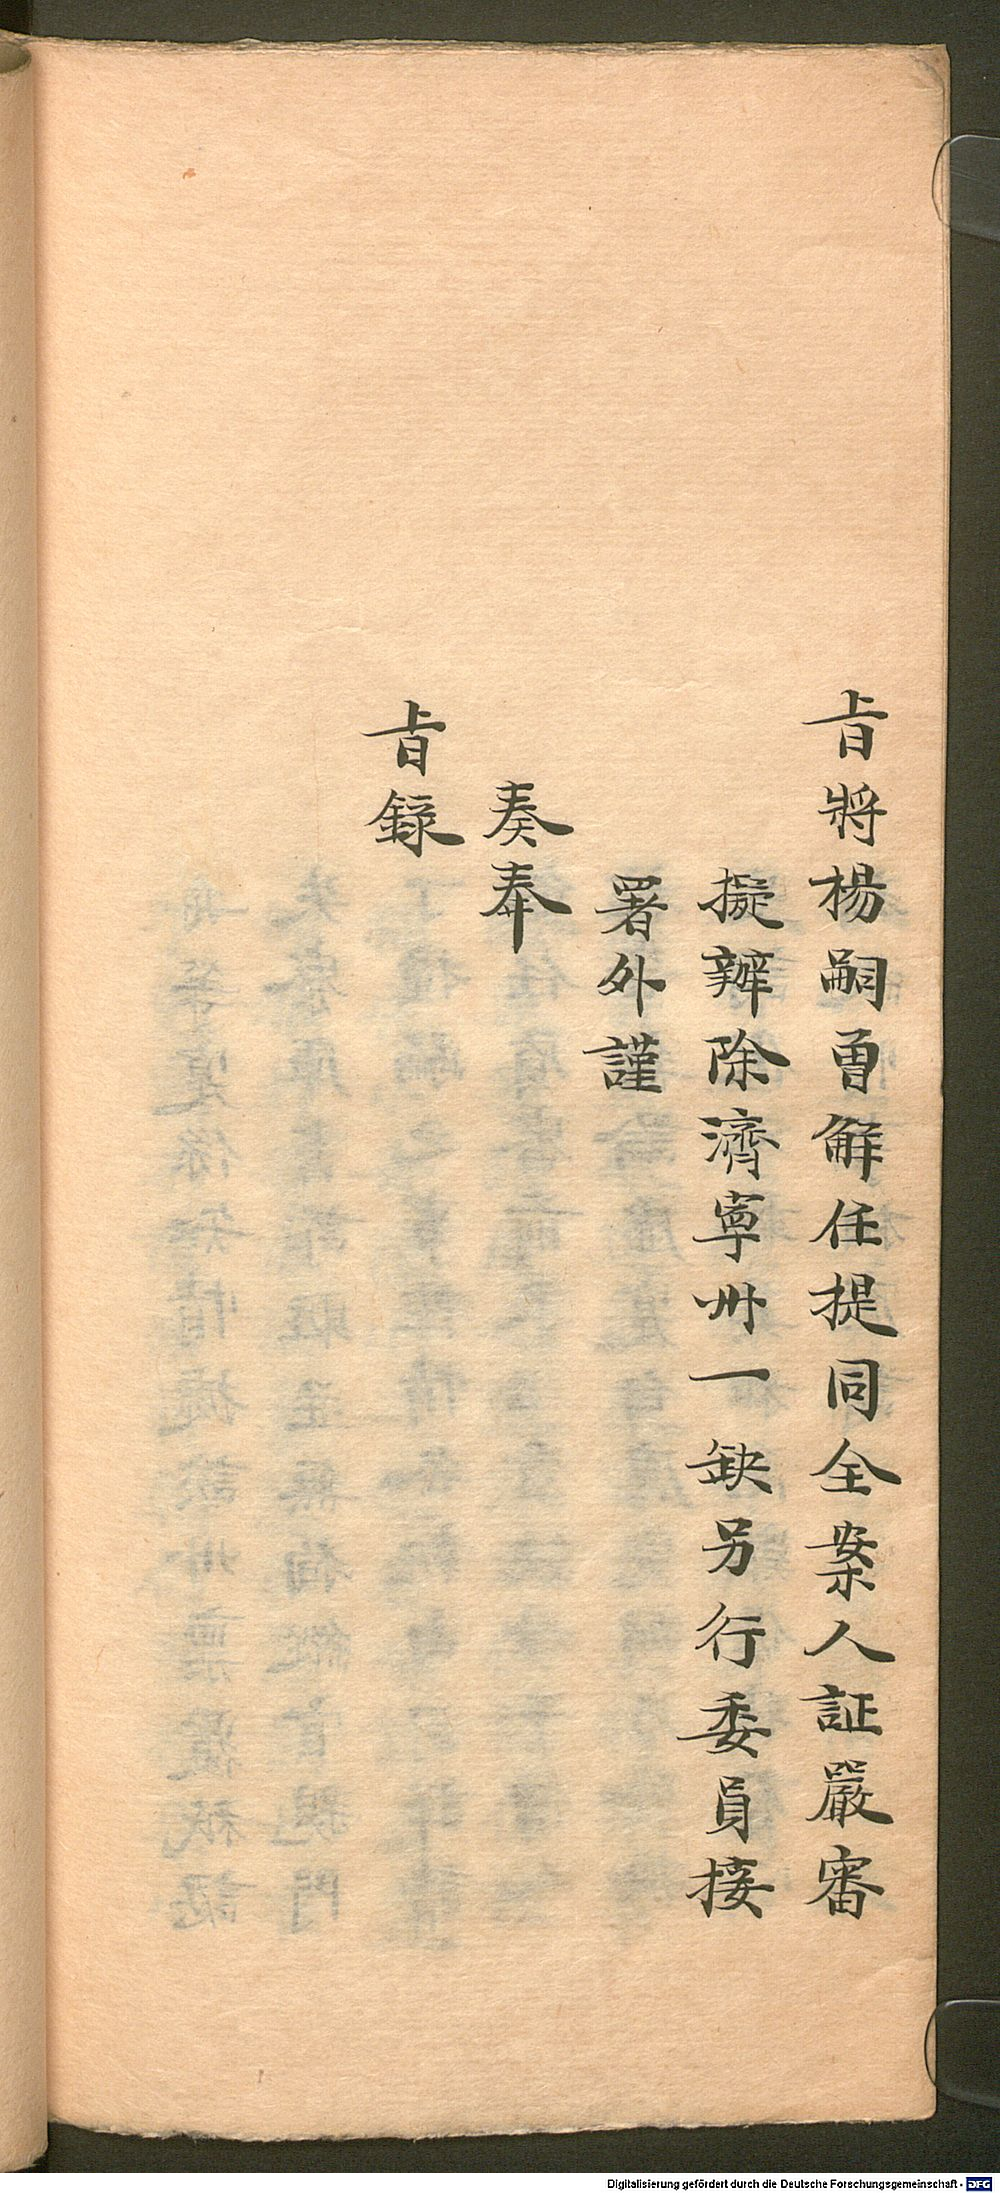 旨將楊嗣曾解任提同全案人証嚴審
擬辦除濟寧州一缺另行委員接
署外謹
奏奉
旨錄
Digitalisierung gefördert durch die Deutsche Forschungsgemeinschaft - DFG